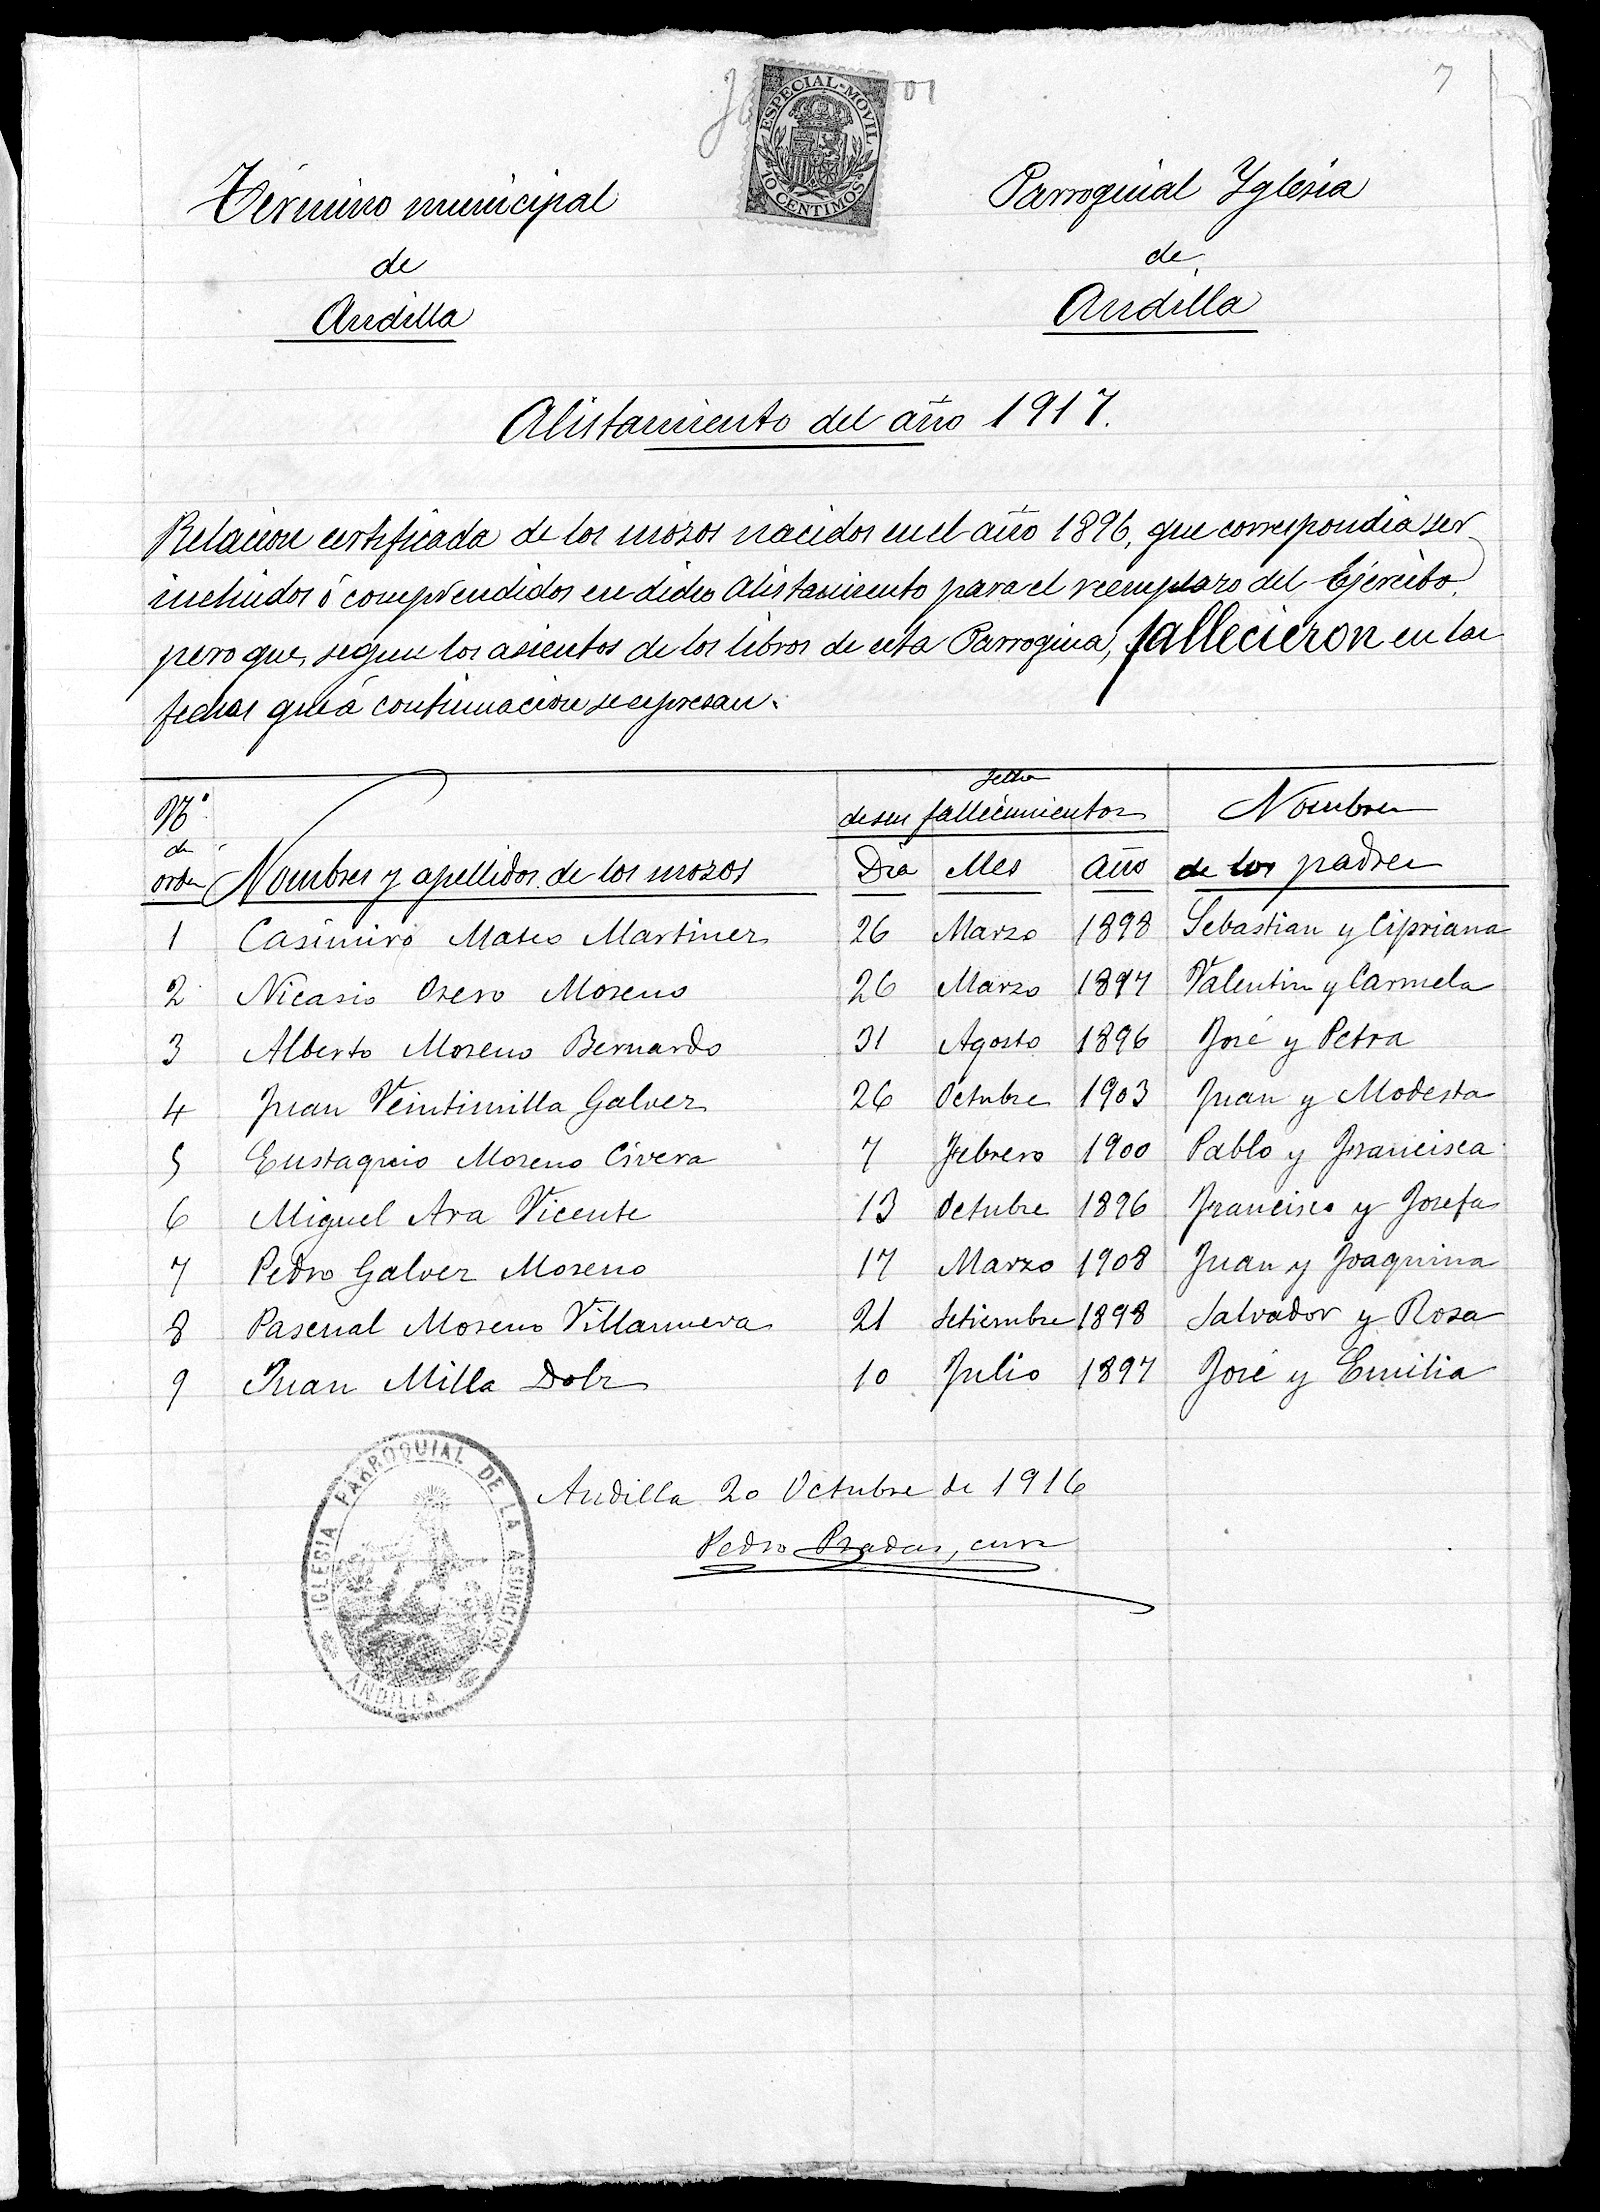 7
ESPECIAL-MOVIL
10 CENTIMOS
Término municipal
de
Andilla
Parroquial Yglesia
de
Andilla
Alistamiento del año 1917.
Relacion certificada de los mozos nacidos en el año 1896, que correspondia ser
incluidos ó comprendidos en dicho Alistamiento para el reemplazo del Ejército,
pero que, segun los asientos de los libros de esta Parroquia, fallecieron en las
fechas que á continuacion se expresan:
Nº de orden Nombres y apellidos de los mozos Fecha de sus fallecimientos Nombres de los padres
Dia Mes Año
1 Casimiro Mateo Martinez 26 Marzo 1898 Sebastian y Cipriana
2 Nicasio Osero Moreno 26 Marzo 1897 Valentin y Carmela
3 Alberto Moreno Bernardo 31 Agosto 1896 José y Petra
4 Juan Veintimilla Galvez 26 Octubre 1903 Juan y Modesta
5 Eustaquio Moreno Civera 7 Febrero 1900 Pablo y Francisca
6 Miguel Ara Vicente 13 Octubre 1896 Francisco y Josefa
7 Pedro Galvez Moreno 17 Marzo 1908 Juan y Joaquina
8 Pascual Moreno Villanueva 21 Setiembre 1898 Salvador y Rosa
9 Juan Milla Dolz 10 Julio 1897 José y Emilia
Andilla 20 Octubre de 1916
Pedro Pradas, cura
IGLESIA PARROQUIAL DE LA ASUNCION
ANDILLA